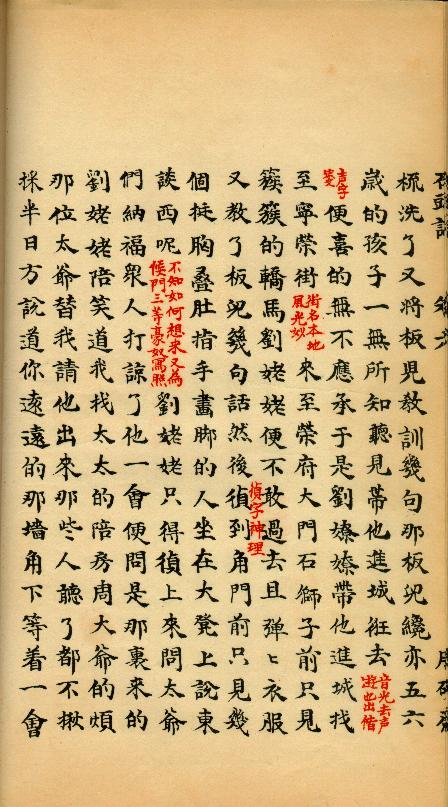 梳洗了又將板兒教訓幾句那板兒纔亦五六
歲的孩子一無所知聽見帶他進城徃去音光去声
遊也出偕
声字
箋便喜的無不應承于是劉嫽嫽帶他進城找
至寧榮街街名本地
風光妙來至榮府大門石獅子前只見
簇簇的轎馬劉姥姥便不敢過去且弹〻衣服
偵字神理
又教了板兒幾句話然後偵到角門前只見幾
個挺胸叠肚指手畫脚的人坐在大凳上說東
談西呢不知如何想來又為
候門三等豪奴寫照劉姥姥只得偵上來問太爺
們納福衆人打諒了他一會便問是那裏來的
劉姥姥陪笑道我找太太的陪房周大爺的煩
那位太爺替我請他出來那些人聽了都不揪
採半日方說道你遠遠的那墙角下等着一會